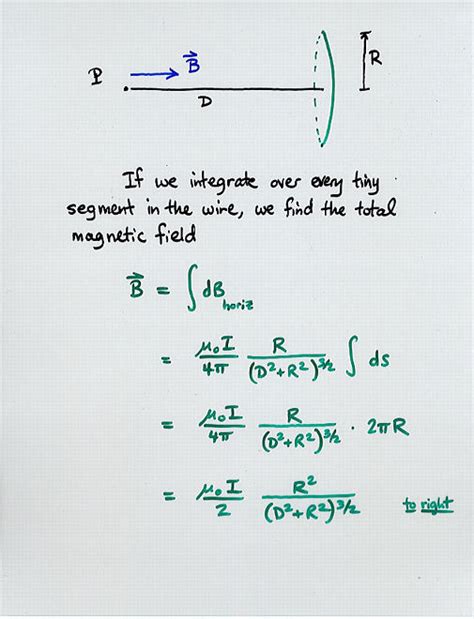 P
B⃗
D
R
If we integrate over every tiny
segment in the wire, we find the total
magnetic field
B⃗ = ∫ dB horiz
= μ₀I/4π R/(D²+R²)^3/2 ∫ ds
= μ₀I/4π R/(D²+R²)^3/2 · 2πR
= μ₀I/2 R²/(D²+R²)^3/2 to right